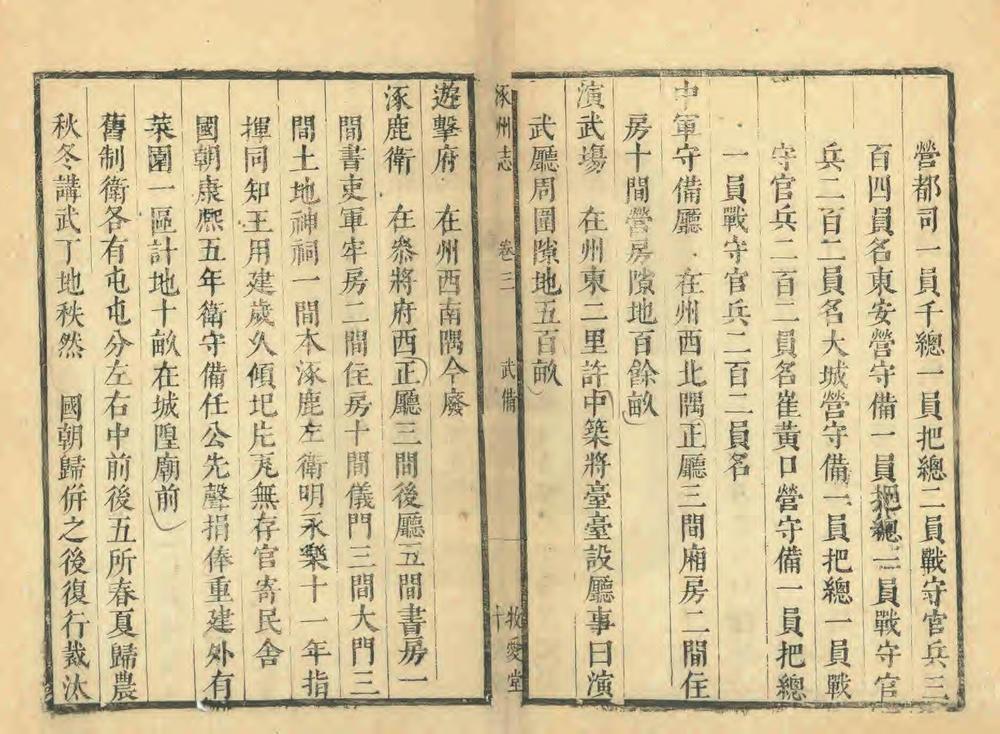 營都司一員千總一員把總二員戰守官兵三
百四員名東安營守備一員把總二員戰守官
兵二百二員名大城營守備一員把總一員戰
守官兵二百二員名崔黃口營守備一員把總
一員戰守官兵二百二員名
中軍守備廳 在州西北隅正廳三間廂房二間住
房十間營房隙地百餘畝
演武場 在州東二里許中築將臺臺設廳事曰演
武廳周圍隙地五百畝
涿州志 卷三 武備 十 牧愛堂
遊擊府 在州西南隅今廢
涿鹿衛 在叅將府西正廳三間後廳五間書房一
間書吏軍牢房二間住房十間儀門三間大門三
間土地神祠一間本涿鹿左衛明永樂十一年指
揮同知王用建歲久傾圮片瓦無存官寄民舍
國朝康熙五年衛守備任公先聲捐俸重建外有
菜園一區計地十畝在城隍廟前
舊制衛各有屯屯分左右中前後五所春夏歸農
秋冬講武丁地秩然 國朝歸併之後復行裁汰